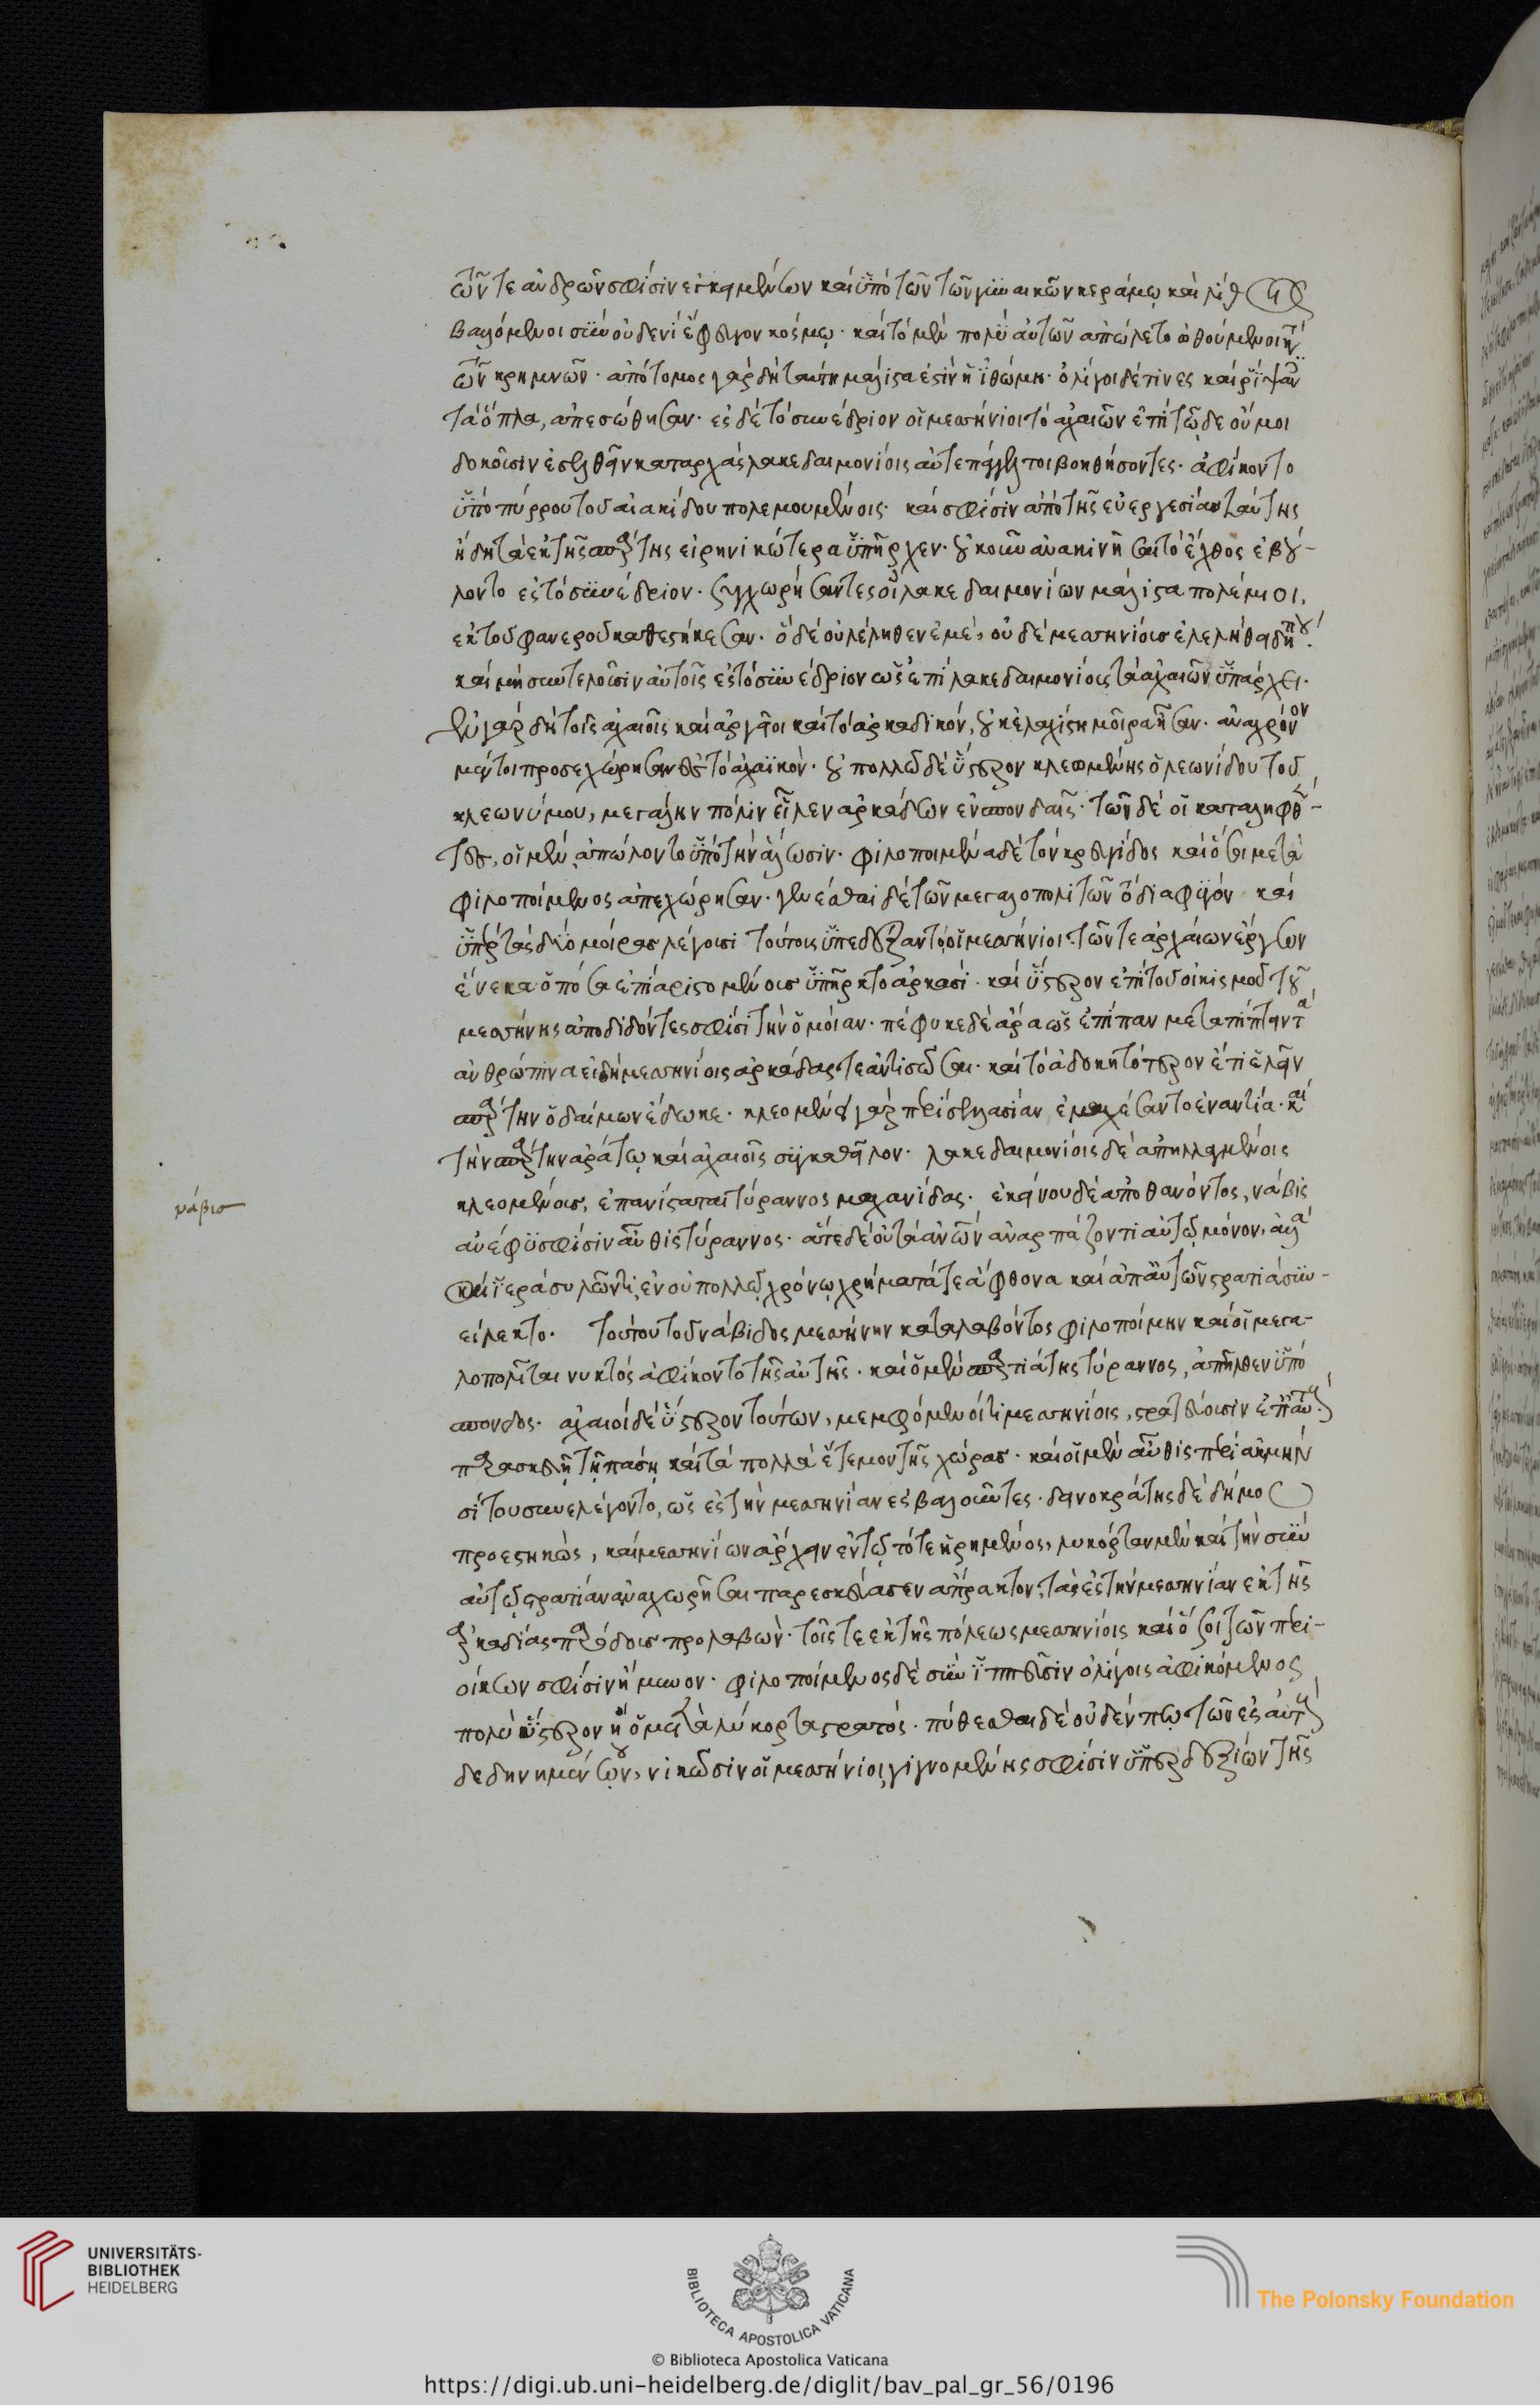 τῶν τε ἀνδρῶν σφίσιν ἐγκειμένων καὶ ὑπὸ τῶν τῶν γυναικῶν κεράμῳ καὶ λίθοις
βαλλόμενοι σὺν οὐδενὶ ἔφευγον κόσμῳ. καὶ τὸ μὲν πολὺ αὐτῶν ἀπώλετο ὠθούμενοι κατὰ
τῶν κρημνῶν. ἀπότομος γὰρ δὴ ταύτη μάλιστα ἐστὶν ἡ ἰθώμη. ὀλίγοι δέ τινες καὶ ῥίψαντες
τὰ ὅπλα, ἀπεσώθησαν. ἐς δὲ τὸ συνέδριον οἱ μεσσήνιοι τὸ ἀχαιῶν ἐπὶ τῷδε οὔ μοι
δοκοῦσιν ἐσελθεῖν καταρχάς λακεδαιμονίοις αὐτεπάγγελτοι βοηθήσοντες. ἀφίκοντο
ὑπὸ πύρρου τοῦ αἰακίδου πολεμουμένοις. καὶ σφίσιν ἀπὸ τῆς εὐεργεσίας ταύτης
ἤδη τὰ ἐκ τῆς σπάρτης εἰρηνικώτερα ὑπῆρχεν. οὐκοῦν ἀνακινῆσαι τὸ ἔχθος ἐβού-
λοντο ἐς τὸ συνέδριον. συγχωρήσαντες οἱ λακεδαιμονίων μάλιστα πολέμιοι,
ἐκ τοῦ φανεροῦ καθεστήκεσαν. ὃ δὲ οὐ λέληθεν ἐμέ, οὐδὲ μεσσηνίους ἐλελήθει δήπου.
καὶ μὴ συντελοῦσιν αὐτοῖς ἐς τὸ συνέδριον ὡς ἐπὶ λακεδαιμονίοις τὰ ἀχαιῶν ὑπάρχει.
ἐν γὰρ δὴ τοῖς ἀχαιοῖς καὶ ἀργεῖοι καὶ τὸ ἀρκαδικόν, οὐκ ἐλαχίστη μοῖρα ἦσαν. ἀνὰ χρόνον
μέντοι προσεχώρησαν ἐς τὸ ἀχαϊκόν. οὐ πολλῷ δὲ ὕστερον κλεομένης ὁ λεωνίδου τοῦ
κλεωνύμου, μεγάλην πόλιν εἷλεν ἀρκάδων ἐν σπονδαῖς. τῶν δὲ οἱ καταληφθέν-
τες, οἱ μὲν ἀπώλοντο ὑπὸ τὴν ἅλωσιν. φιλοποιμένα δὲ τὸν κραυγίδος καὶ ὅσοι μετὰ
φιλοποίμενος ἀπεχώρησαν. γενέσθαι δὲ τῶν μεγαλοπολιτῶν τὸ διαφυγόν καὶ
ὑπὲρ τὰς δύο μοίρας λέγουσι τούτοις ὑπεδέξαντο οἱ μεσσήνιοι. τῶν τε ἀρχαίων ἔργων
ἕνεκα ὁπόσα ἐπὶ ἀριστομένους ὑπῆρκτο ἀρκάσι. καὶ ὕστερον ἐπὶ τοῦ οἰκισμοῦ τοῦ
μεσσήνης ἀποδιδόντες σφίσι τὴν ὁμοίαν. πέφυκε δὲ ἄρα ὡς ἐπίπαν μεταπίπτειν τὰ
ἀνθρώπινα εἰ δὴ μεσσηνίοις ἀρκάδας τε ἀντισῶσαι. καὶ τὸ ἀδοκητότερον ἔτι ἑλεῖν
σπάρτην ὁ δαίμων ἔδωκε. κλεομένει γὰρ περὶ σελασίαν ἐμαχέσαντο ἐναντία. καὶ
τὴν σπάρτην ἀράτῳ καὶ ἀχαιοῖς συγκαθεῖλον. λακεδαιμονίοις δὲ ἀπηλλαγμένοις
κλεομένους, ἐπανίσταται τύραννος μαχανίδας. ἐκείνου δὲ ἀποθανόντος, νάβις
ἀνέφυ σφίσιν αὖθις τύραννος. ἅτε δὲ οὐ τὰ ἀνθρώπων ἀναρπάζοντι αὐτῷ μόνον, ἀλλὰ
καὶ ἱερὰ συλῶντι, ἐν οὐ πολλῷ χρόνῳ χρήματά τε ἄφθονα καὶ ἀπ' αὐτῶν στρατιὰ συν-
είλεκτο. τούτου τοῦ νάβιδος μεσσήνην καταλαβόντος φιλοποίμην καὶ οἱ μεγα-
λοπολῖται νυκτὸς ἀφίκοντο τῆς αὐτῆς. καὶ ὁ μὲν σπαρτιάτης τύραννος, ἀπῆλθεν ὑπό
σπονδος. ἀχαιοὶ δὲ ὕστερον τούτων, μεμφόμενοί τι μεσσηνίοις, στρατεύουσιν ἐπ' αὐτοὺς
παρασκευῇ τῇ πάσῃ καὶ τὰ πολλὰ ἔτεμον τῆς χώρας. καὶ οἱ μὲν αὖθις περὶ ἀκμὴν
σίτου συνελέγοντο, ὡς ἐς τὴν μεσσηνίαν ἐσβαλοῦντες. δεινοκράτης δὲ δήμου
προεστηκὼς, καὶ μεσσηνίων ἄρχειν ἐν τῷ τότε ᾑρημένος, λυκόρταν μὲν καὶ τὴν σὺν
αὐτῷ στρατιὰν ἀναχωρῆσαι παρεσκεύασεν ἄπρακτον, τὰς ἐς τὴν μεσσηνίαν ἐκ τῆς
ἀρκαδίας παρόδους προλαβών. τοῖς τε ἐκ τῆς πόλεως μεσσηνίοις καὶ ὅσοι τῶν περι-
οίκων σφίσιν ἤμυνον. φιλοποίμενος δὲ σὺν ἱππεῦσιν ὀλίγοις ἀφικόμενος
πολὺ ὕστερον ἢ ὁ μετὰ λυκόρτα στρατός. πυθέσθαι δὲ οὐδέν πω τῶν ἐς αὐτοὺς
δεδυνημένων, νικῶσιν οἱ μεσσήνιοι, γιγνομένης σφίσιν ὑπερδεξίων τῆς
νάβισ
UNIVERSITÄTS-
BIBLIOTHEK
HEIDELBERG
BIBLIOTECA APOSTOLICA VATICANA
© Biblioteca Apostolica Vaticana
The Polonsky Foundation
https://digi.ub.uni-heidelberg.de/diglit/bav_pal_gr_56/0196